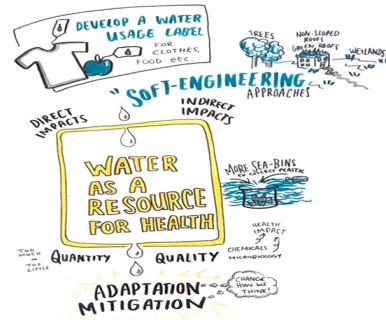 DEVELOP A WATER
USAGE LABEL
FOR
CLOTHES,
FOOD etc.
TREES
NON-SLOPED
ROOFS
GREEN ROOFS
WETLANDS
"SOFT-ENGINEERING"
APPROACHES
DIRECT
IMPACTS
INDIRECT
IMPACTS
WATER
AS A
RESOURCE
FOR HEALTH
MORE SEA-BINS
TO COLLECT PLASTIC
HEALTH
IMPACT
CHEMICALS
MICROBIOLOGY
TOO
MUCH
TOO
LITTLE
QUANTITY
QUALITY
ADAPTATION
MITIGATION
CHANGE
HOW WE
THINK!